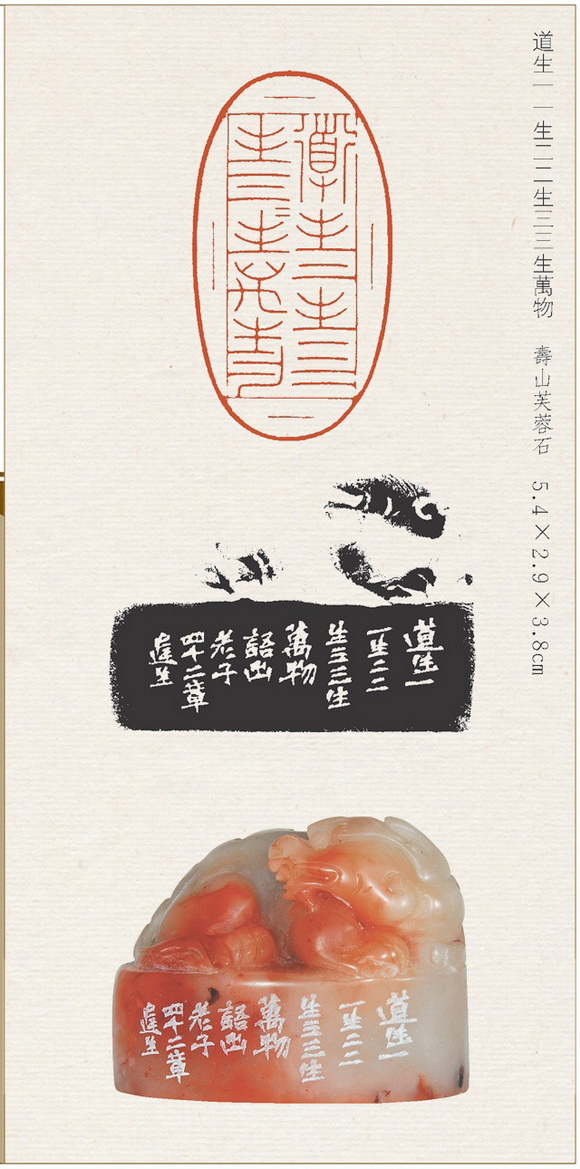 道生一一生二二生三三生萬物　壽山芙蓉石　5.4×2.9×3.8cm
道生一一生二二
生三三生萬物
道生一
一生二二
生三三生
萬物
語出
老子
四十二章
達生
道生一
一生二二
生三三生
萬物
語出
老子
四十二章
達生